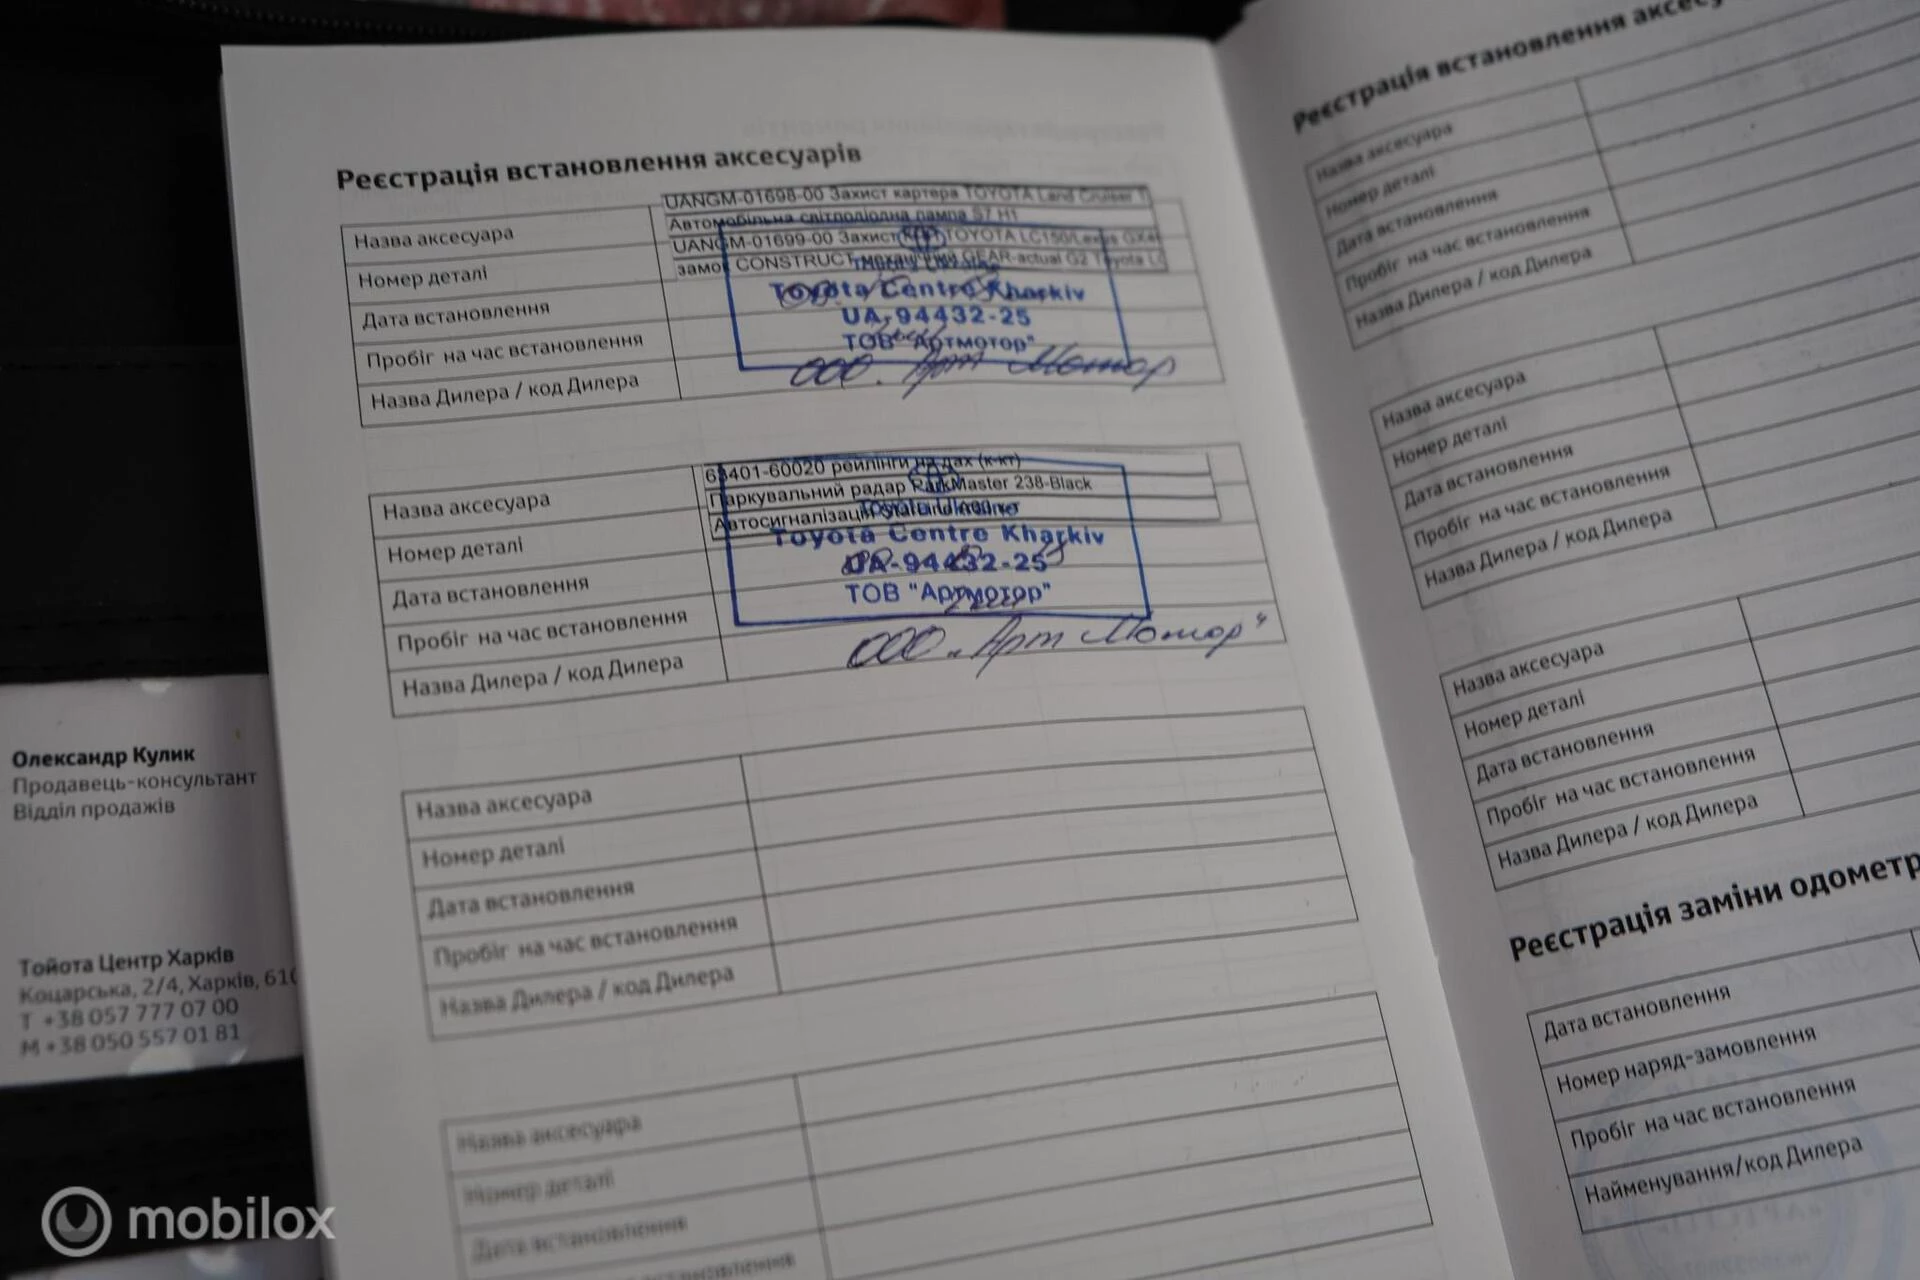 Реєстрація встановлення аксесуарів
Назва аксесуара
UANGM-01698-00 Захист картера TOYOTA Land Cruiser
Автомобільна світлодіодна лампа S7 H1
UANGM-01699-00 Захист КПП TOYOTA LC150/Lexus
замок CONSTRUCT механічний GEAR-actual G2 Toyota
Номер деталі
Дата встановлення
Пробіг на час встановлення
Назва Дилера / код Дилера
Toyota Centre Kharkiv
UA-94432-25
ТОВ "Артмотор"
ООО. Арт Мотор
Назва аксесуара
63401-60020 рейлінги на дах (к-кт)
Паркувальний радар ParkMaster 238-Black
Автосигналізація
Номер деталі
Дата встановлення
Пробіг на час встановлення
Назва Дилера / код Дилера
Toyota Ukraine
Toyota Centre Kharkiv
UA-94432-25
ТОВ "Артмотор"
ООО „Арт Мотор"
Назва аксесуара
Номер деталі
Дата встановлення
Пробіг на час встановлення
Назва Дилера / код Дилера
Назва аксесуара
Номер деталі
Дата встановлення
встановлення
Реєстрація встановлення
Назва аксесуара
Номер деталі
Дата встановлення
Пробіг на час встановлення
Назва Дилера / код Дилера
Назва аксесуара
Номер деталі
Дата встановлення
Пробіг на час встановлення
Назва Дилера / код Дилера
Назва аксесуара
Номер деталі
Дата встановлення
Пробіг на час встановлення
Назва Дилера / код Дилера
Реєстрація заміни одометр
Дата встановлення
Номер наряд-замовлення
Пробіг на час встановлення
Найменування/код Дилера
Олександр Кулик
Продавець-консультант
Відділ продажів
Тойота Центр Харків
Коцарська, 2/4, Харків, 610
Т +38 057 777 07 00
М +38 050 557 01 81
mobilox